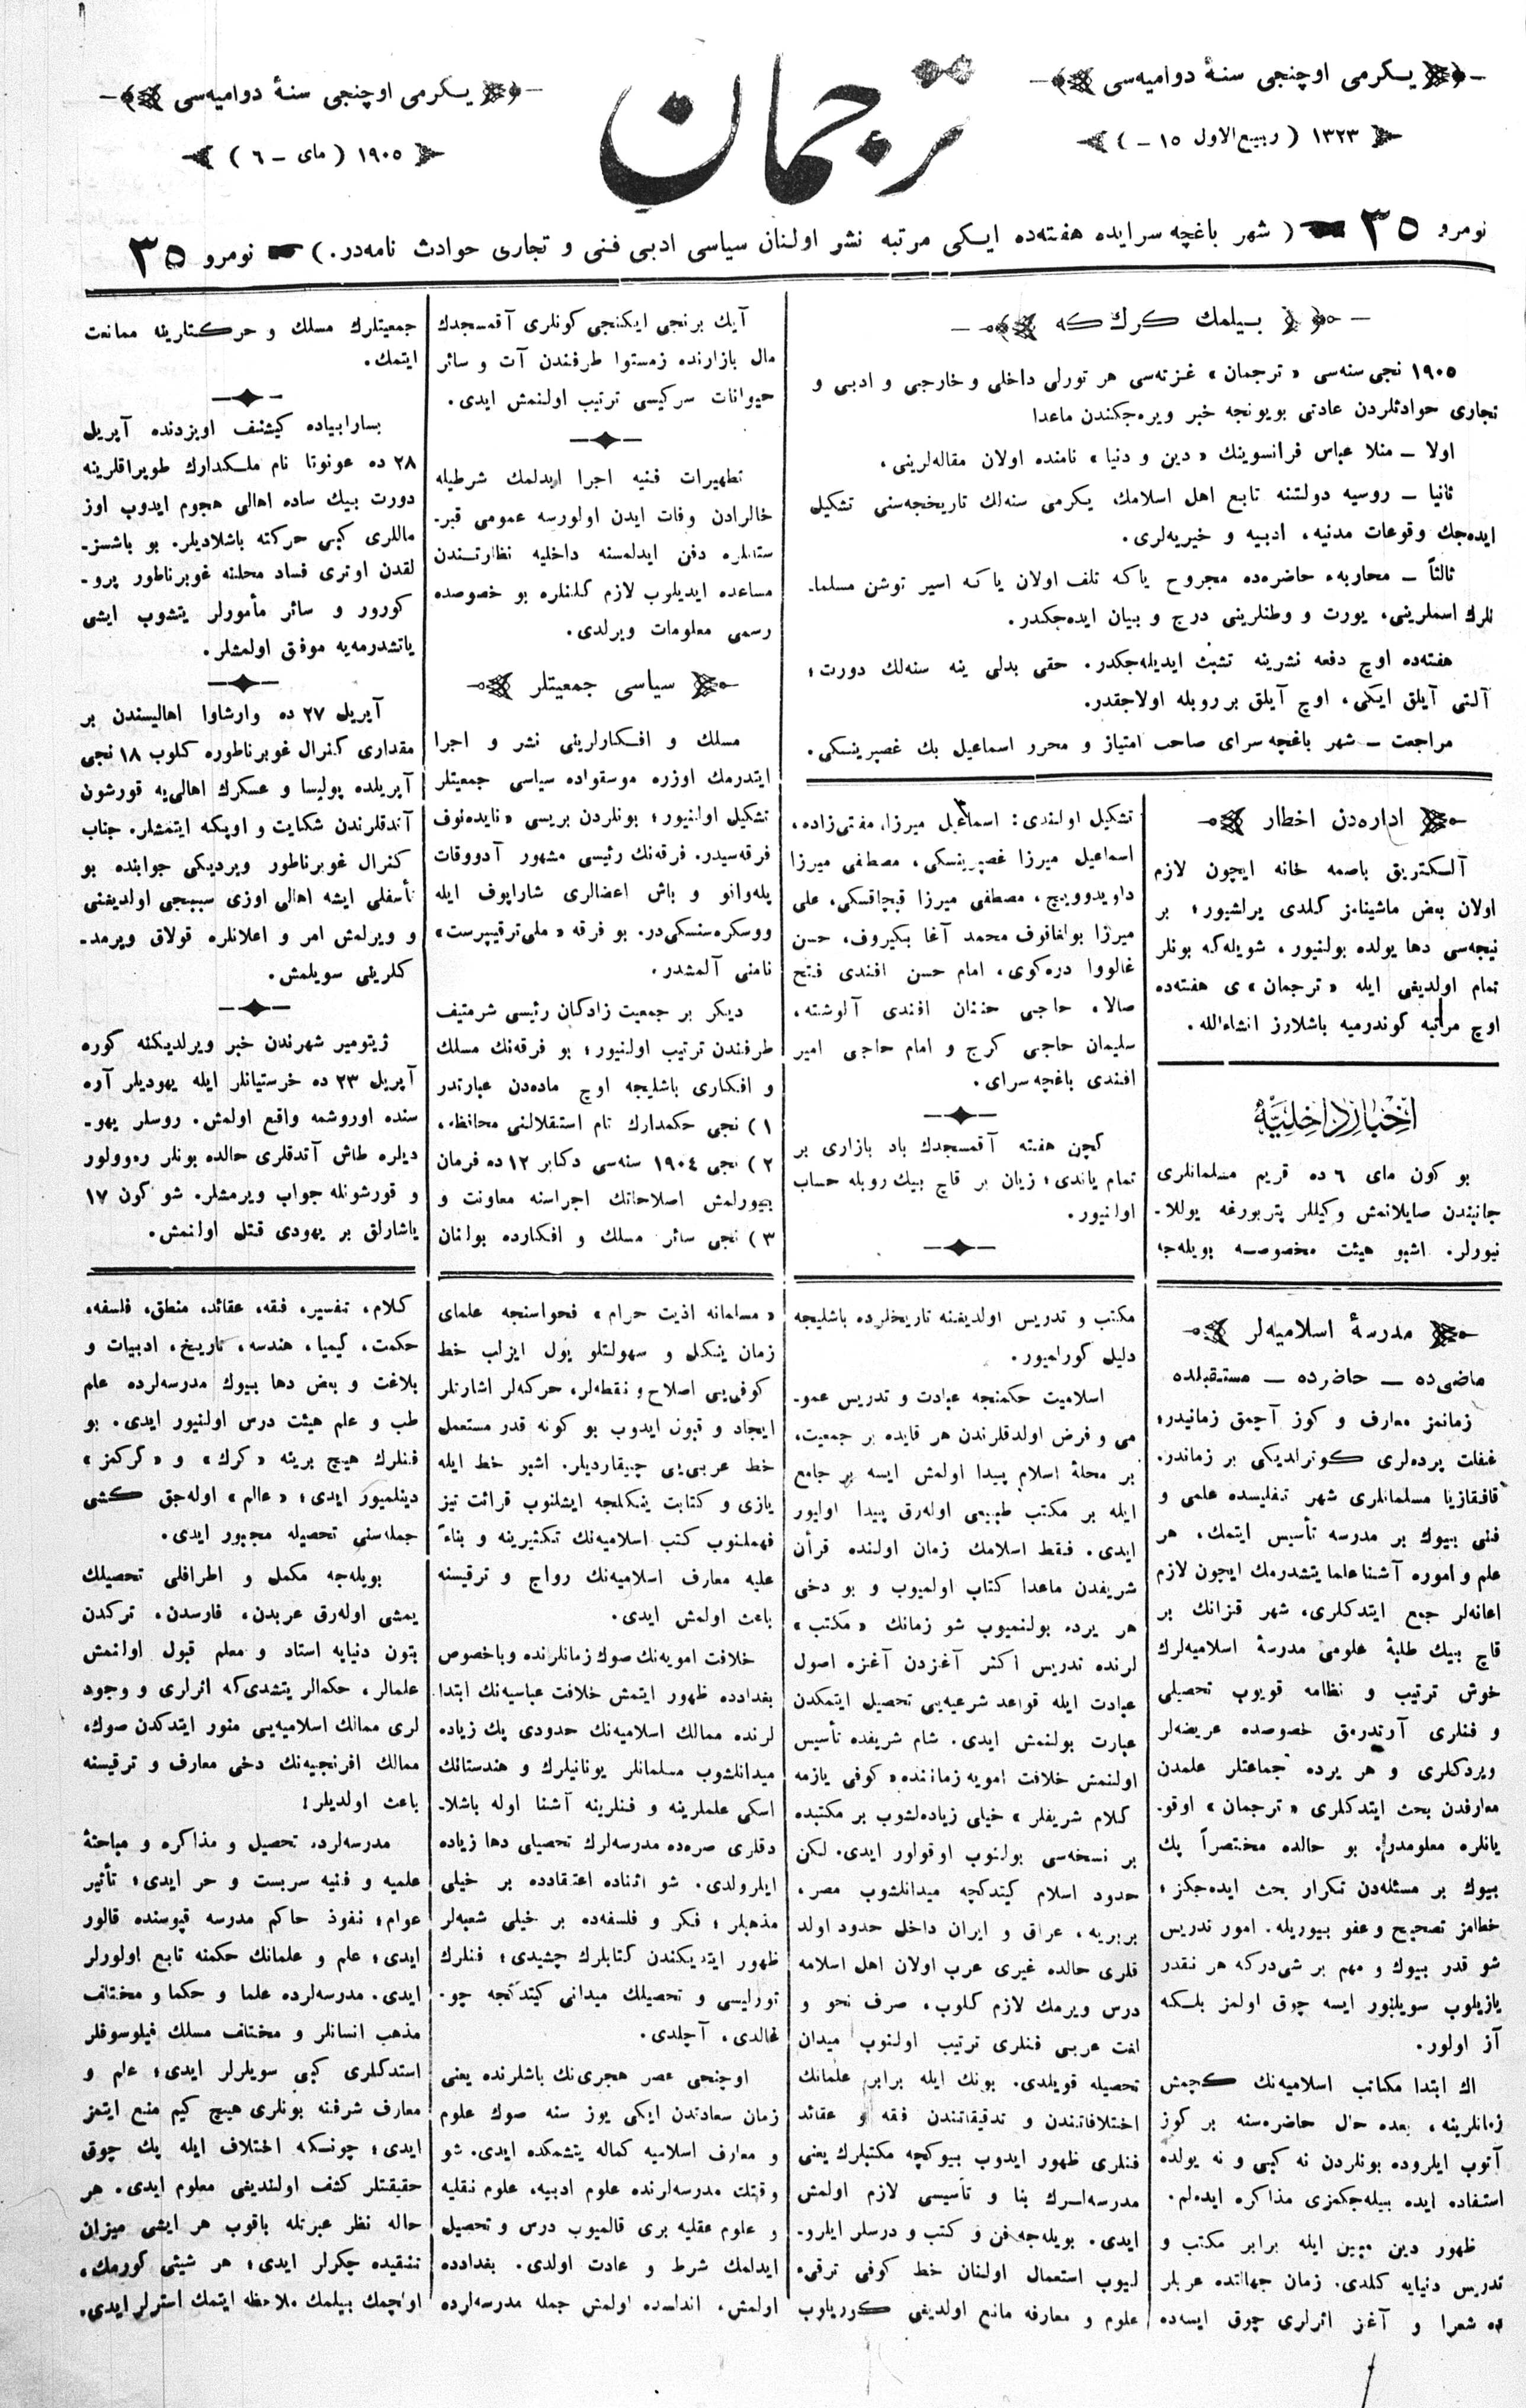 يكرمى اوچنجى سنهٔ دواميه‌سى
١٣٢٣ ( ربيع الاول ١٥ – )
ترجمان
يكرمى اوچنجى سنهٔ دواميه‌سى
١٩٠٥ ( ماى – ٦ )
نومرو ٣٥ ( شهر باغچه سرايده هفته‌ده ايكى مرتبه نشر اولنان سياسى ادبى فنى و تجارى حوادث نامه‌در. ) نومرو ٣٥
بيلمك كرك كه
١٩٠٥ نجى سنه‌سى « ترجمان » غزته‌سى هر تورلى داخلى و خارجى و ادبى و
تجارى حوادثلردن عادتى بويونجه خبر ويره‌جكندن ماعدا
اولا – منلا عباس فرانسوينك « دين و دنيا » نامنده اولان مقاله‌لرينى ،
ثانيا – روسيه دولتنه تابع اهل اسلامك يكرمى سنه‌لك تاريخجه‌سنى تشكيل
ايده‌جك وقوعات مدنيه، ادبيه و خيريه‌لرى.
ثالثاً – محاربهء حاضره‌ده مجروح ياكه تلف اولان ياكه اسير توشن مسلما-
نلرك اسملرينى، يورت و وطنلرينى درج و بيان ايده‌جكدر.
هفته‌ده اوچ دفعه نشرينه تشبث ايديله‌جكدر. حقى بدلى ينه سنه‌لك دورت ؛
آلتى آيلق ايكى، اوچ آيلق بر روبله اولاجقدر.
مراجعت – شهر باغچه سراى صاحب امتياز و محرر اسماعيل بك غصپرينسكى.
اداره‌دن اخطار
آلكتريق باصمه خانه ايچون لازم
اولان بعض ماشينامز كلدى يرلشيور ؛ بر
نيچه‌سى دها يولده بولنيور ، شويله‌كه بونلر
تمام اولديغى ايله « ترجمان » ى هفته‌ده
اوچ مراتبه كوندرميه باشلارز انشاءالله.
اخبار داخليه
بو كون ماى ٦ ده قريم مسلمانلرى
جانبندن صايلانمش وكيللر پتربورغه يوللا-
نيورلر. اشبو هيئت مخصوصه بويله‌جه
تشكيل اولندى : اسماعيل ميرزا مفتى‌زاده،
اسماعيل ميرزا غصپرينسكى، مصطفى ميرزا
داويدوويچ، مصطفى ميرزا قپچاقسكى، على
ميرزا بولغاقوف محمد آغا بكيروف، حسن
غالووا دره‌كوى، امام حسن افندى فتح
صالا، حاجى حنثان افندى آلوشته،
سليمان حاجى كرج و امام حاجى امير
افندى باغچه سراى.
كچن هفته آقمسجدك باد بازارى بر
تمام ياندى ؛ زيان بر قاچ بيك روبله حساب
اولنيور.
آيك برنجى ايكنجى كونلرى آقمسجدك
مال بازارنده زمستوا طرفندن آت و سائر
حيوانات سركيسى ترتيب اولنمش ايدى.
تطهيرات فنيه اجرا ايدلمك شرطيله
خالرادن وفات ايدن اولورسه عمومى قبر-
ستانلره دفن ايدلمسنه داخليه نظارتندن
مساعده ايديلوب لازم كلنلره بو خصوصده
رسمى معلومات ويرلدى.
سياسى جمعيتلر
مسلك و افكارلرينى نشر و اجرا
ايتدرمك اوزره موسقواده سياسى جمعيتلر
تشكيل اولنيور ؛ بونلردن بريسى « نايده‌نوف
فرقه‌سيدر. فرقه‌نك رئيسى مشهور آدووقات
پله‌وانو و باش اعضالرى شاراپوف ايله
ووسكره‌سنسكى‌در. بو فرقه « ملى ترقيپرست »
نامنى آلمشدر.
ديكر بر جمعيت زادكان رئيسى شرمتيف
طرفندن ترتيب اولنيور ؛ بو فرقه‌نك مسلك
و افكارى باشليجه اوچ ماده‌دن عبارتدر
١ ) نجى حكمدارك تام استقلالنى محافظه،
٢ ) نجى ١٩٠٤ سنه‌سى دكابر ١٢ ده فرمان
بيورلمش اصلاحاتك اجراسنه معاونت و
٣ ) نجى سائر مسلك و افكارده بولنان
جمعيتلرك مسلك و حركتلرينه ممانعت
ايتمك.
بسارابياده كيشنف اويزدنده آپريل
٢٨ ده عونوتا نام ملكدارك طوپراقلرينه
دورت بيك ساده اهالى هجوم ايدوب اوز
ماللرى كبى حركته باشلاديلر. بو باشسز-
لقدن اوترى فساد محلنه غوبرناطور پرو-
كورور و سائر مأمورلر يتشوب ايشى
ياتشدرمه‌يه موفق اولمشلر.
آپريل ٢٧ ده وارشاوا اهاليسندن بر
مقدارى كنرال غوبرناطوره كلوب ١٨ نجى
آپريلده پوليسا و عسكرك اهالى‌يه قورشون
آندقلرندن شكايت و اوپكه ايتمشلر. جناب
كنرال غوبرناطور ويرديكى جوابنده بو
تأسفلى ايشه اهالى اوزى سببجى اولديغنى
و ويرلمش امر و اعلانلره قولاق ويرمد-
كلرينى سويلمش.
ژيتومير شهرندن خبر ويرلديكنه كوره
آپريل ٢٣ ده خرستيانلر ايله يهوديلر آره
سنده اوروشمه واقع اولمش. روسلر يهو-
ديلره طاش آتدقلرى حالده بونلر ره‌وولور
و قورشونله جواب ويرمشلر. شو كون ١٧
ياشارلق بر يهودى قتل اولنمش.
مدرسهٔ اسلاميه‌لر
ماضى‌ده – حاضرده – مستقبلده
زمانمز معارف و كوز آچمق زمانيدر؛
غفلت پرده‌لرى كوترلديكى بر زماندر.
قافقازيا مسلمانلرى شهر تفليسده علمى و
فنى بيوك بر مدرسه تأسيس ايتمك، هر
علم و اموره آشنا علما يتشدرمك ايچون لازم
اعانه‌لر جمع ايتدكلرى، شهر قزانك بر
قاچ بيك طلبهٔ علومى مدرسهٔ اسلاميه‌لرك
خوش ترتيب و نظامه قويوب تحصيلى
و فنلرى آرتدرمق خصوصده عريضه‌لر
ويردكلرى و هر يرده جماعتلر علمدن
معارفدن بحث ايتدكلرى « ترجمان » اوقو-
يانلره معلومدر. بو حالده مختصراً پك
بيوك بر مسئله‌دن تكرار بحث ايده‌جكز ؛
خطامز تصحيح و عفو بيوريله. امور تدريس
شو قدر بيوك و مهم بر شى‌دركه هر نقدر
يازيلوب سويلنور ايسه چوق اولمز بلكه
آز اولور.
اك ابتدا مكاتب اسلاميه‌نك كچمش
زمانلرينه، بعده حال حاضره‌سنه بر كوز
آتوب ايلروده بونلردن نه كبى و نه يولده
استفاده ايده بيله‌جكمزى مذاكره ايده‌لم.
ظهور دين مبين ايله برابر مكتب و
تدريس دنيايه كلدى. زمان جهالتده عربلر
ده شعرا و آغز اثرلرى چوق ايسه‌ده
مكتب و تدريس اولديغنه تاريخلرده باشليجه
دليل كورلميور.
اسلاميت حكمنجه عبادت و تدريس عمو-
مى و فرض اولدقلرندن هر قايده بر جمعيت،
بر محلهٔ اسلام پيدا اولمش ايسه بر جامع
ايله بر مكتب طبيعى اوله‌رق پيدا اوليور
ايدى. فقط اسلامك زمان اولنده قرأن
شريفدن ماعدا كتاب اولميوب و بو دخى
هر يرده بولنميوب شو زمانك « مكتب »
لرنده تدريس اكثر آغزدن آغزه اصول
عبادت ايله قواعد شرعيه‌يى تحصيل ايتمكدن
عبارت بولنمش ايدى. شام شريفده تأسيس
اولنمش خلافت امويه زماننده « كوفى يازمه
كلام شريفلر » خيلى زياده‌لشوب بر مكتبده
بر نسخه‌سى بولنوب اوقولور ايدى. لكن
حدود اسلام كيتدكچه ميدانلشوب مصر،
بربريه، عراق و ايران داخل حدود اولد
قلرى حالده غيرى عرب اولان اهل اسلامه
درس ويرمك لازم كلوب، صرف نحو و
لغت عربى فنلرى ترتيب اولنوب ميدان
تحصيله قويلدى. بونك ايله برابر علمانك
اختلافاتندن و تدقيقاتندن فقه و عقائد
فنلرى ظهور ايدوب بيوكچه مكتبلرك يعنى
مدرسه‌لرك بنا و تأسيسى لازم اولمش
ايدى. بويله‌جه فن و كتب و درسلر ايلرو-
ليوب استعمال اولنان خط كوفى ترقىء
علوم و معارفه مانع اولديغى كوريلوب
« مسلمانه اذيت حرام » فحواسنجه علماى
زمان ينكل و سهولتلو يول ايزلب خط
كوفى‌يى اصلاح و نقطه‌لر، حركه‌لر اشارتلر
ايجاد و قبول ايدوب بو كونه قدر مستعمل
خط عربى‌يى چيقارديلر. اشبو خط ايله
يازى و كتابت ينكلجه ايشلنوب قرائت تيز
فهملنوب كتب اسلاميه‌نك تكثيرينه و بناءً
عليه معارف اسلاميه‌نك رواج و ترقيسنه
باعث اولمش ايدى.
خلافت امويه‌نك صوك زمانلرنده و باخصوص
بغدادده ظهور ايتمش خلافت عباسيه‌نك ابتدا
لرنده ممالك اسلاميه‌نك حدودى پك زياده
ميدانلشوب مسلمانلر يونانيلرك و هندستانك
اسكى علملرينه و فنلرينه آشنا اوله باشلا-
دقلرى صره‌ده مدرسه‌لرك تحصيلى دها زياده
ايلرولدى. شو اثناده اعتقادده بر خيلى
مذهبلر ؛ فكر و فلسفه‌ده بر خيلى شعبه‌لر
ظهور ايتديكندن كتابلرك چشيدى ؛ فنلرك
تورليسى و تحصيلك ميدانى كيتدكجه چو-
غالدى، آچلدى.
اوچنجى عصر هجرى‌نك باشلرنده يعنى
زمان سعادتدن ايكى يوز سنه صوك علوم
و معارف اسلاميه كماله يتشمكده ايدى. شو
وقتلك مدرسه‌لرنده علوم ادبيه، علوم نقليه
و علوم عقليه برى قالميوب درس و تحصيل
ايدلمك شرط و عادت اولدى. بغدادده
اولمش، اندلسده اولمش جمله مدرسه‌لرده
كلام، تفسير، فقه، عقائد، منطق، فلسفه،
حكمت، كيميا، هندسه، تاريخ، ادبيات و
بلاغت و بعض دها بيوك مدرسه‌لرده علم
طب و علم هيئت درس اولنيور ايدى. بو
فنلرك هيچ برينه « كرك » و « كركمز »
دينلميور ايدى ؛ « عالم » اوله‌جق كشى
جمله‌سنى تحصيله مجبور ايدى.
بويله‌جه مكمل و اطرافلى تحصيلك
يمشى اوله‌رق عربدن، فارسدن، تركدن
بتون دنيايه استاد و معلم قبول اولنمش
علمالر، حكمالر يتشدى‌كه اثرلرى و وجود
لرى ممالك اسلاميه‌يى منور ايتدكدن صوك،
ممالك افرنجيه‌نك دخى معارف و ترقيسنه
باعث اولديلر !
مدرسه‌لرده تحصيل و مذاكره و مباحثهٔ
علميه و فنيه سربست و حر ايدى ؛ تأثير
عوام ؛ نفوذ حاكم مدرسه قپوسنده قالور
ايدى ؛ علم و علمانك حكمنه تابع اولورلر
ايدى. مدرسه‌لرده علما و حكما و مختلف
مذهب انسانلر و مختلف مسلك فيلوسوفلر
استدكلرى كبى سويلرلر ايدى ؛ علم و
معارف شرفنه بونلرى هيچ كيم منع ايتمز
ايدى ؛ چونكه اختلاف ايله پك چوق
حقيقتلر كشف اولنديغى معلوم ايدى. هر
حاله نظر عبرتله باقوب هر ايشى ميزان
تنقيده چكرلر ايدى ؛ هر شيئى كورمك،
اولچمك بيلمك ملاحظه ايتمك استرلر ايدى.